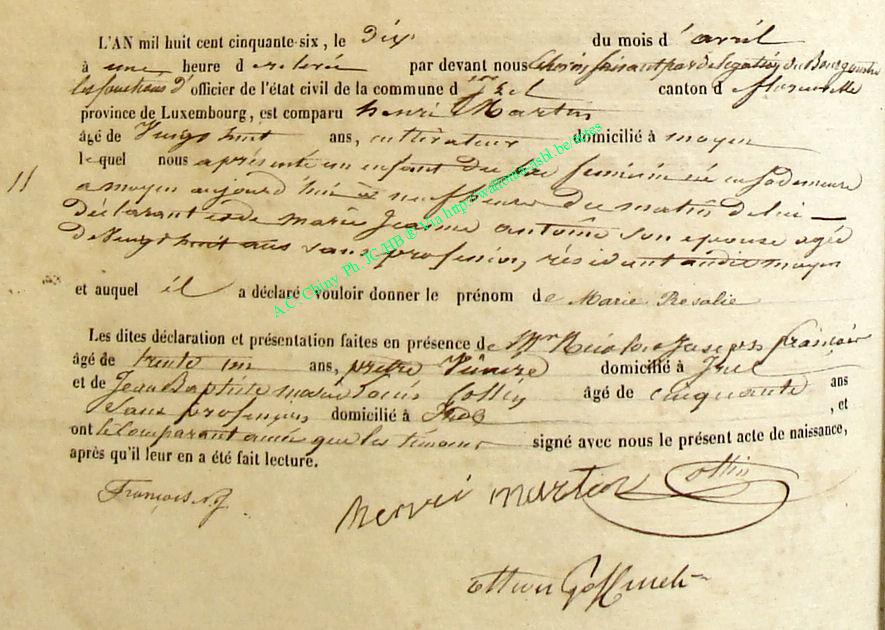 L'AN mil huit cent cinquante-six, le Dix du mois d'avril
à une heure de relevée par devant nous Echevin, faisant par délégation du Bourgmestre
les fonctions d'officier de l'état civil de la commune d'Izel canton de florenville
province de Luxembourg, est comparu henri Martin
âgé de Vingt huit ans, cultivateur domicilié à moyen
lequel nous a présenté un enfant du sexe féminin née en sa demeure
11
a moyen aujourd'hui à neuf heure du matin de lui
déclarant et de marie Jeanne antoine son epouse agée
de Vingt huit ans sans profession, résidant audit moyen
et auquel il a déclaré vouloir donner le prénom de Marie Rosalie
Les dites déclaration et présentation faites en présence de Mr Nicolas Joseph françois
âgé de trente un ans, prêtre Vicaire domicilié à Izel
et de Jean Baptiste Louis Collin âgé de cinquante ans
Sans profession, domicilié à Izel, et
ont le comparant ainsi que les témoins signé avec nous le présent acte de naissance,
après qu'il leur en a été fait lecture.
François N.J.
henri martin
Collin
A.C. Chiny Ph. JC HB @ tha http://wallonica asbl.be/actes